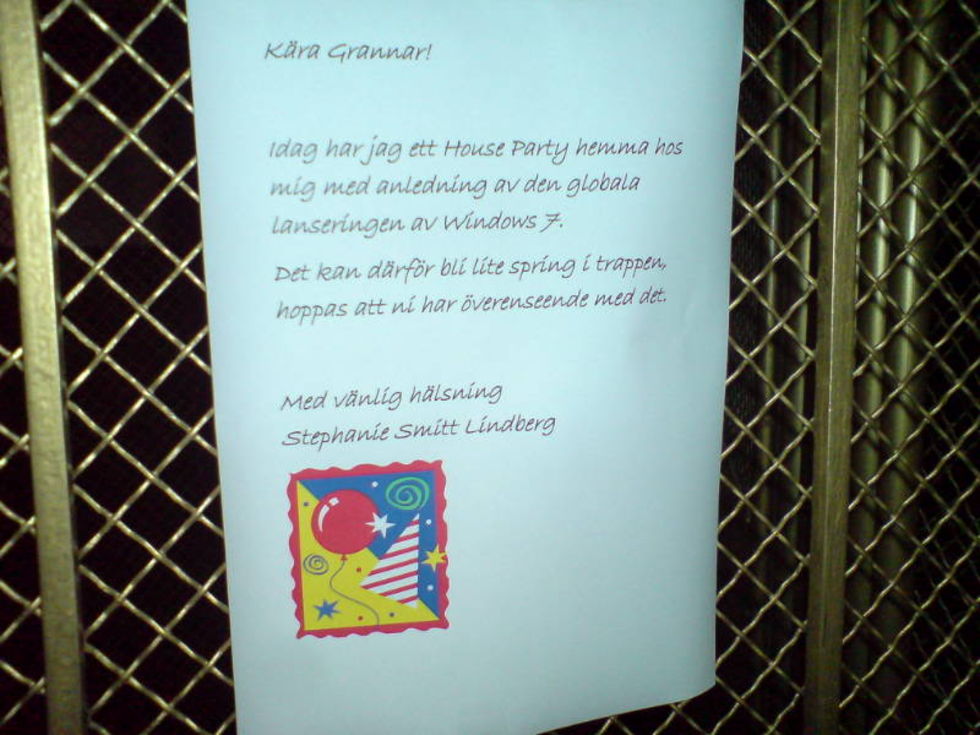 Kära Grannar!
Idag har jag ett House Party hemma hos
mig med anledning av den globala
lanseringen av Windows 7.
Det kan därför bli lite spring i trappen,
hoppas att ni har överenseende med det.
Med vänlig hälsning
Stephanie Smitt Lindberg